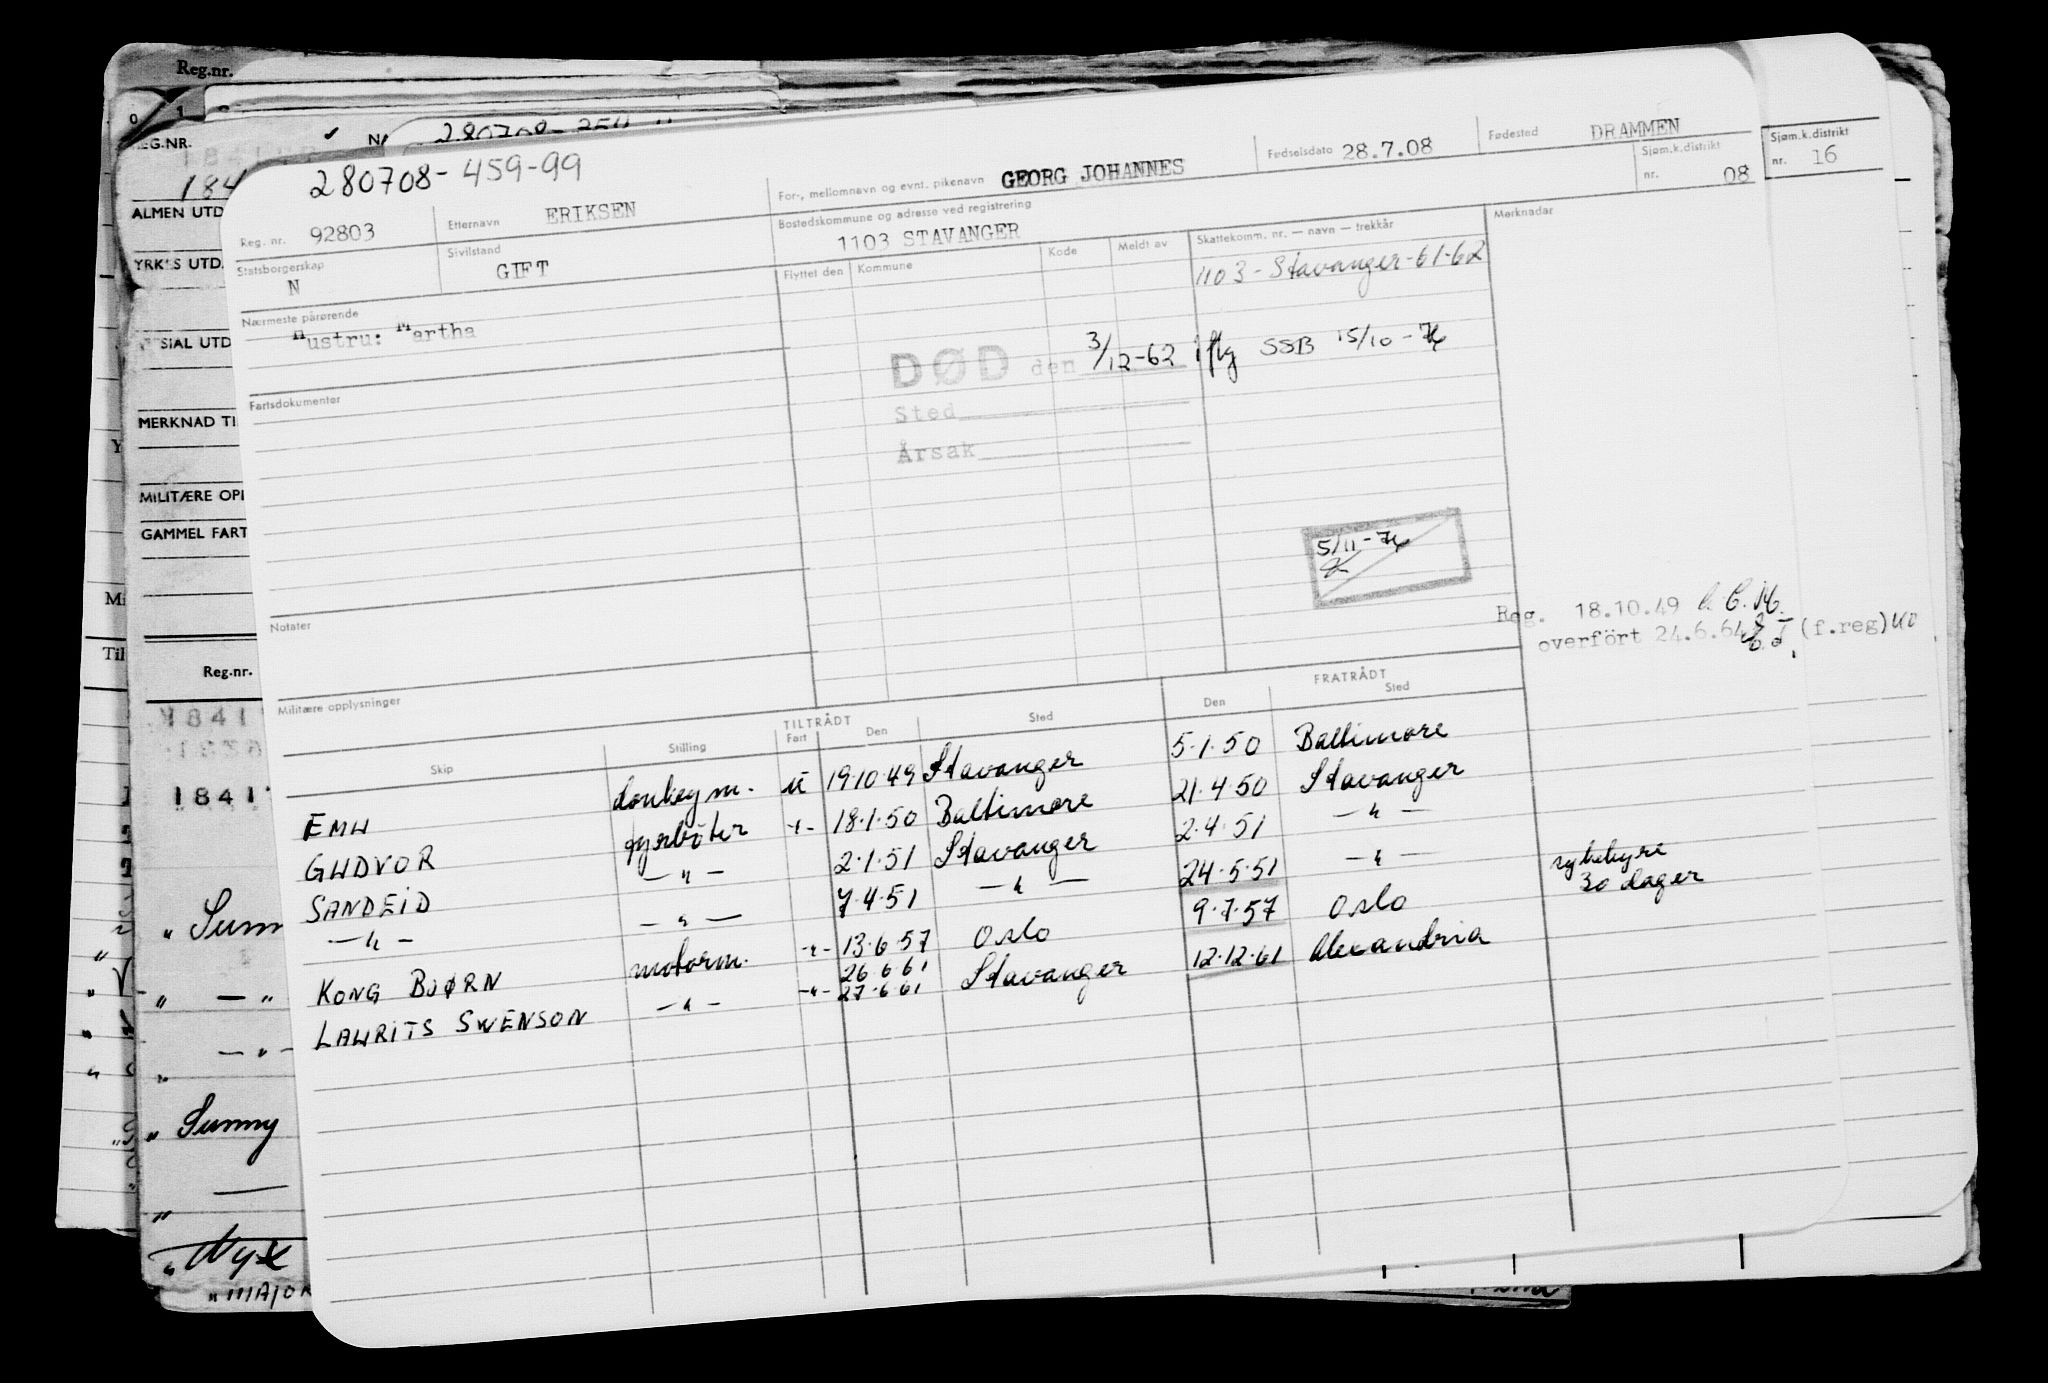 Reg.nr.
REG.NR.
ALMEN UTD
YRKES UTD.
SIAL UTD
MERKNAD TI
MILITÆRE OPI
GAMMEL FART
Reg.nr.
1841
Sunny
Nyx
280708-459-99
Reg. nr. 92803 Etternavn ERIKSEN For-, mellomnavn og evnt. pikenavn GEORG JOHANNES Fødselsdato 28.7.08 Fødested DRAMMEN Sjøm.k.distrikt nr. 16
Statsborgerskap N Sivilstand GIFT Bostedskommune og adresse ved registrering 1103 STAVANGER Sjøm.k.distrikt nr. 08
Nærmeste pårørende Flyttet den Kommune Kode Meldt av Skattekomm. nr. — navn — trekkår Merknader
Hustru: Martha 1103 - Stavanger-61-62
DØD den 3/12-62 iflg SSB 15/10-76
Fartsdokumenter
Sted
Årsak
5/11-76
Notater
Reg. 18.10.49
overfört 24.6.64 (f.reg)
Militære opplysninger
TILTRÅDT FRATRÅDT
Skip Stilling Fart Den Sted Den Sted
EMU donkeym. U 19.10.49 Stavanger 5.1.50 Baltimore
GUDVOR fyrböter -"- 18.1.50 Baltimore 21.4.50 Stavanger
SANDEID -"- 2.1.51 Stavanger 2.4.51 -"-
-"- -"- 7.4.51 -"- 24.5.51 -"- sykehyre 30 dager
KONG BJØRN motorm. -"- 13.6.57 Oslo 9.7.57 Oslo
LAURITS SWENSON -"- -"- 26.6.61 27.6.61 Stavanger 12.12.61 Alexandria